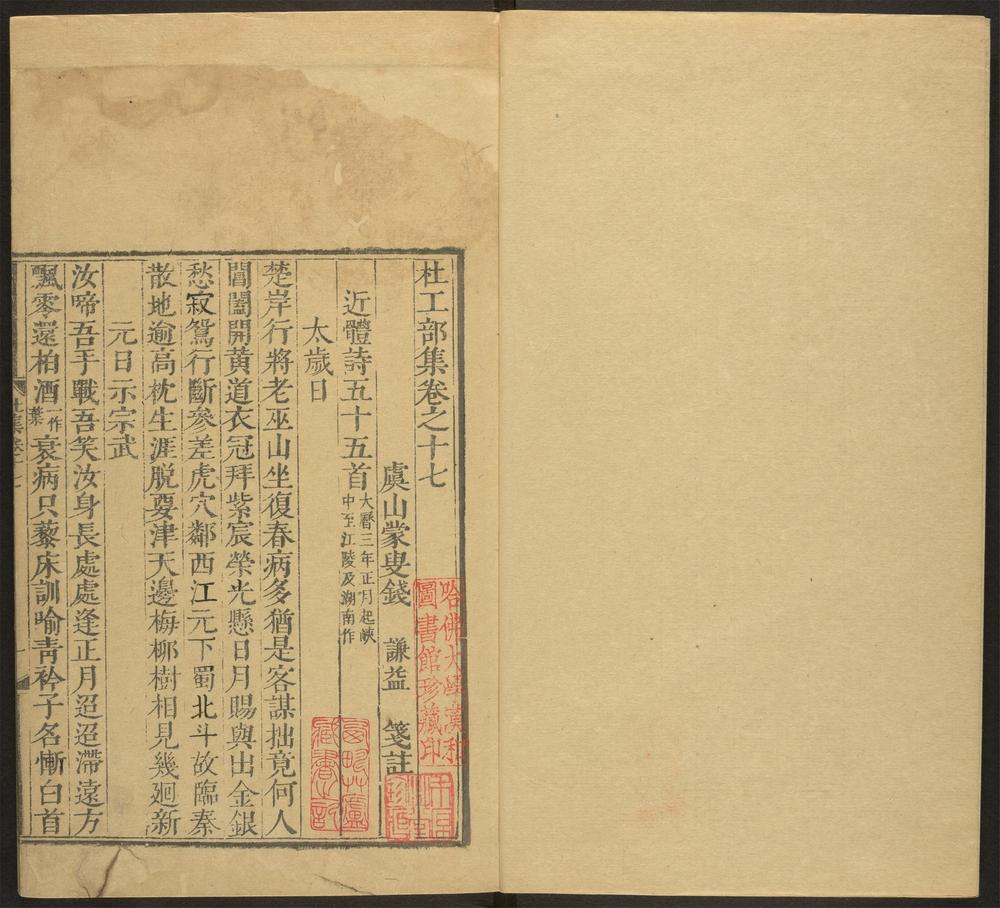 杜工部集卷之十七
虞山蒙叟錢 謙益 箋註
近體詩五十五首大曆三年正月起峽中至江陵及湖南作
太歲日
楚岸行將老巫山坐復春病多猶是客謀拙竟何人
閶闔開黃道衣冠拜紫宸榮光懸日月賜與出金銀
愁寂鴛行斷參差虎穴鄰西江元下蜀北斗故臨秦
散地逾高枕生涯脫要津天邊梅柳樹相見幾廻新
元日示宗武
汝啼吾手戰吾笑汝身長處處逢正月迢迢滯遠方
飄零還柏酒一作葉衰病只藜床訓喻青衿子名慚白首
哈佛大學漢和
圖書館珍藏印
藏書記